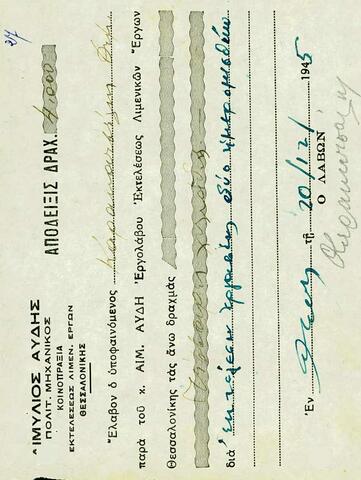 27
ΑΙΜΥΛΙΟΣ ΑΥΔΗΣ
ΠΟΛΙΤ. ΜΗΧΑΝΙΚΟΣ
ΚΟΙΝΟΠΡΑΞΙΑ
ΕΚΤΕΛΕΣΕΩΣ ΛΙΜΕΝ. ΕΡΓΩΝ
ΘΕΣΣΑΛΟΝΙΚΗΣ
ΑΠΟΔΕΙΞΙΣ ΔΡΑΧ. 4.000
Ἔλαβον ὁ ὑποφαινόμενος
παρὰ τοῦ κ. ΑΙΜ. ΑΥΔΗ Ἐργολάβου Ἐκτελέσεως Λιμενικῶν Ἔργων
Θεσσαλονίκης τὰς ἄνω δραχμὰς
διὰ ἐκτέλεσιν ἐργασίας δύο ἡμερομισθίων
Ἐν τῇ 20/12/1945
Ὁ ΛΑΒΩΝ